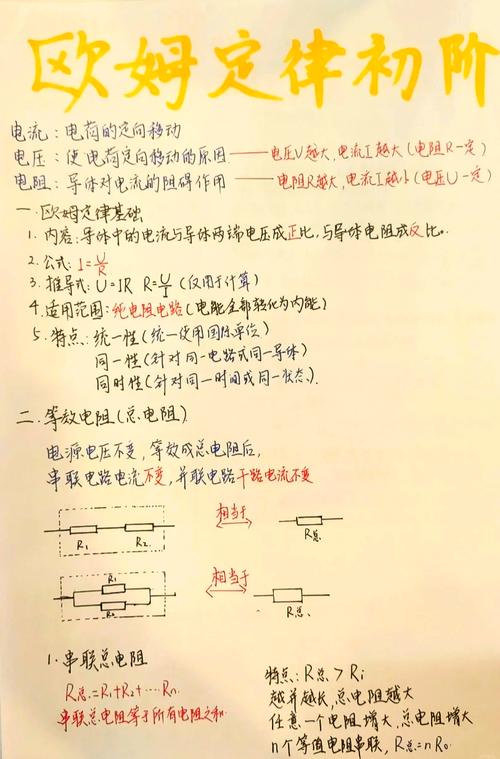 欧姆定律初阶
电流：电荷的定向移动
电压：使电荷定向移动的原因——电压U越大,电流I越大(电阻R一定)
电阻：导体对电流的阻碍作用——电阻R越大,电流I越小(电压U一定)
一.欧姆定律基础
1.内容:导体中的电流与导体两端电压成正比,与导体电阻成反比.
2.公式:I=U/R
3.推导式:U=IR R=U/I (仅用于计算)
4.适用范围:纯电阻电路(电能全部转化为内能)
5.特点:统一性(统一使用国际单位)
同一性(针对同一电路或同一导体)
同时性(针对同一时间或同一状态).
二.等效电阻(总电阻)
电源电压不变,等效成总电阻后,
串联电路电流不变,并联电路干路电流不变
R1 R2 相当于 R总
R1 R2 相当于 R总.
1.串联总电阻
R总=R1+R2+····Rn.
串联总电阻等于所有电阻之和.
特点:R总>Ri
越并越长,总电阻越大
任意一个电阻增大,总电阻增大
n个等值电阻串联,R总=nR0.